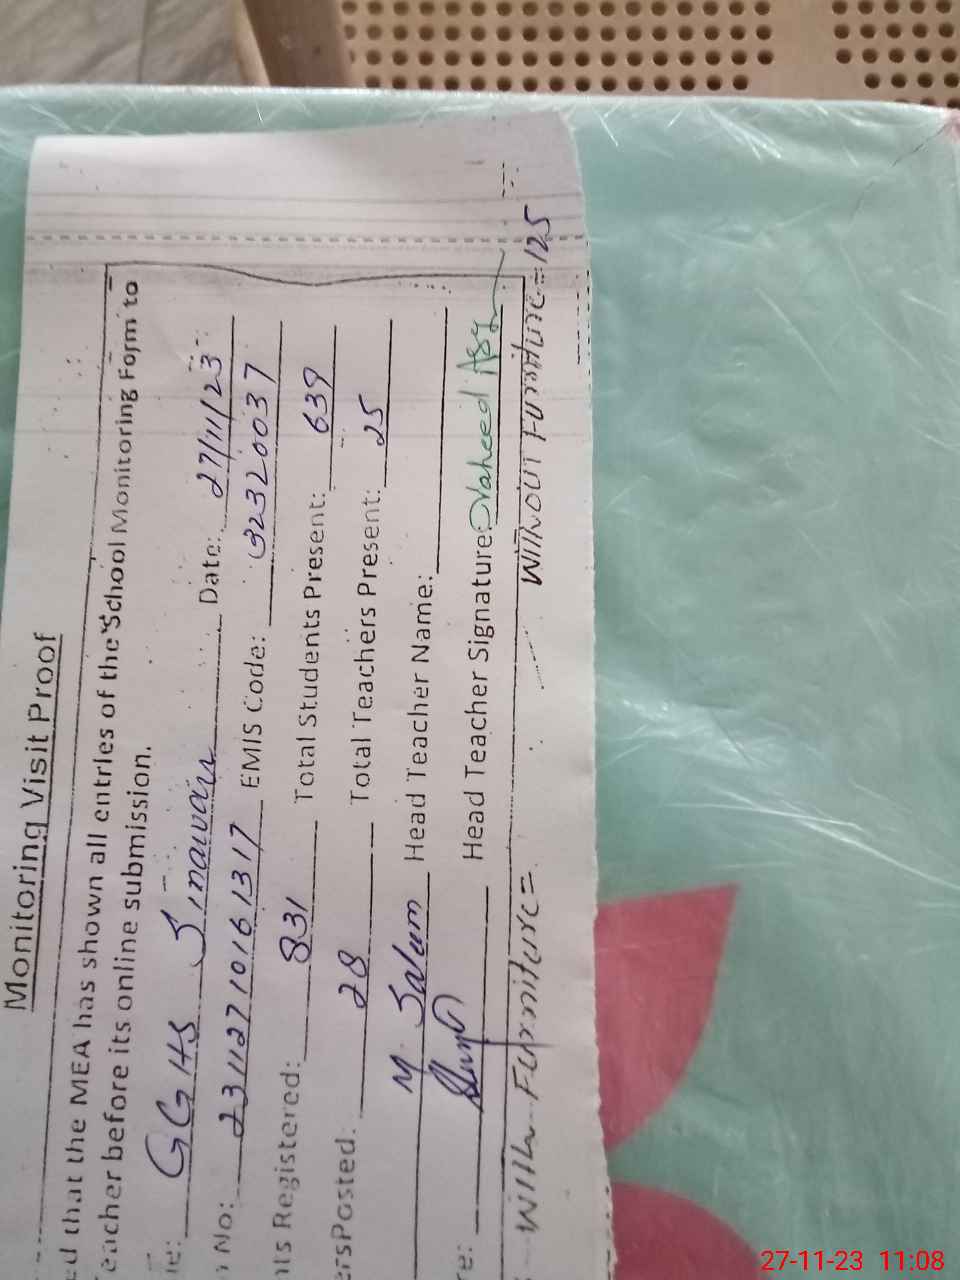 Monitoring Visit Proof
ed that the MEA has shown all entries of the School Monitoring Form to
Teacher before its online submission.
ne: GGHS Sinawan Date: 27/11/23
No: 23112710161317 EMIS Code: 32320037
nts Registered: 831 Total Students Present: 639
ersPosted: 28 Total Teachers Present: 25
M. Salum Head Teacher Name:
re: Head Teacher Signature: Waheed
With Furniture= Without Furniture=125
27-11-23 11:08